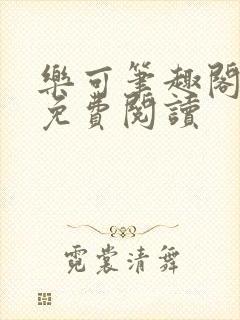 樂可筆趣閣
免費閱讀
霓裳清舞